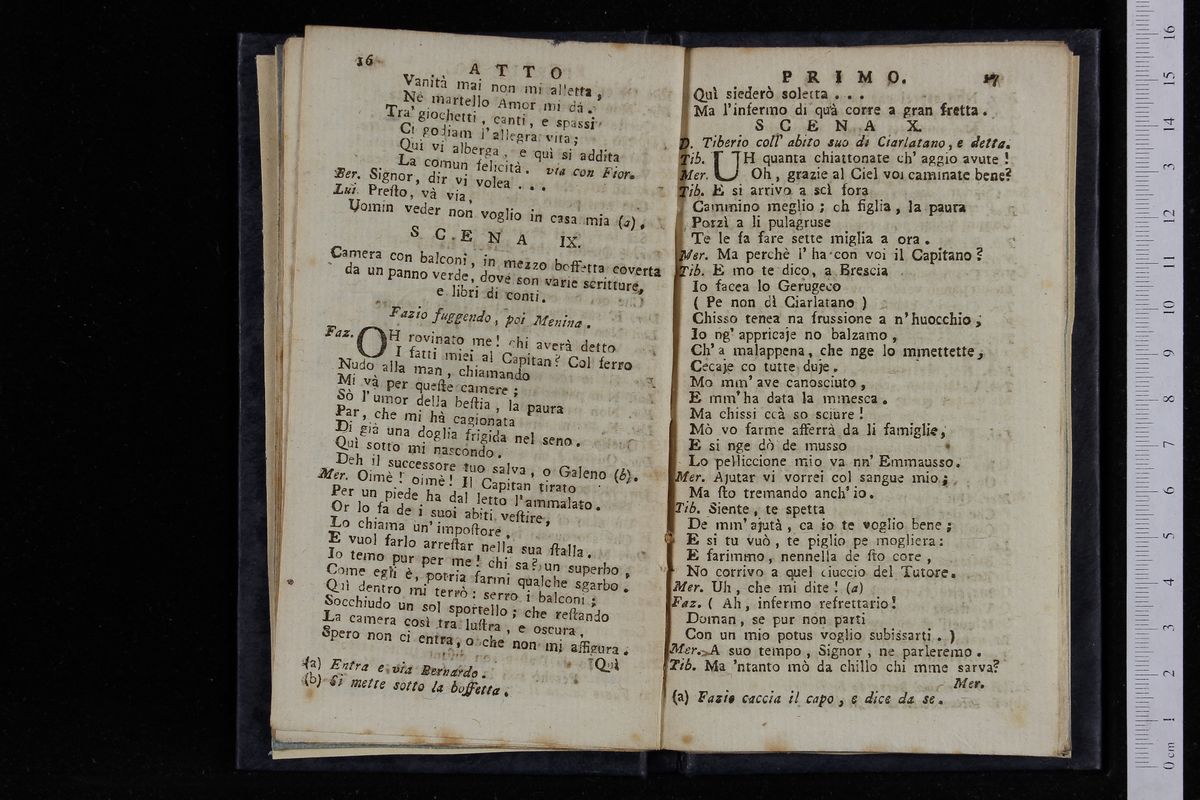 16
ATTO
Vanità mai non mi alletta,
Nè martello Amor mi dà.
Tra' giochetti, canti, e spassi
Ci godiam l'allegra vita;
Qui vi alberga, e quì si addita
La comun felicità. via con Fior.
Ber. Signor, dir vi volea . . .
Lui. Presto, và via,
Uomin veder non voglio in casa mia (a).
SCENA IX.
Camera con balconi, in mezzo boffetta coverta
da un panno verde, dove son varie scritture,
e libri di conti.
Fazio fuggendo, poi Menina.
Faz. OH rovinato me! chi averà detto
I fatti miei al Capitan? Col ferro
Nudo alla man, chiamando
Mi và per queste camere;
Sò l'umor della bestia, la paura
Par, che mi hà cagionata
Di già una doglia frigida nel seno.
Quì sotto mi nascondo.
Deh il successore tuo salva, o Galeno (b).
Mer. Oimè! oimè! Il Capitan tirato
Per un piede ha dal letto l'ammalato.
Or lo fa de i suoi abiti vestire,
Lo chiama un' impostore,
E vuol farlo arrestar nella sua stalla.
Io temo pur per me! chi sa? un superbo,
Come egli è, potria farmi qualche sgarbo.
Quì dentro mi terrò: serro i balconi;
Socchiudo un sol sportello; che restando
La camera così tra lustra, e oscura,
Spero non ci entra, o che non mi affigura.
(a) Entra e via Bernardo.
Quì
(b) Si mette sotto la boffetta.
PRIMO. 17
Quì siederò soletta . . .
Ma l'infermo di quà corre a gran fretta.
SCENA X.
D. Tiberio coll' abito suo di Ciarlatano, e detta.
Tib. UH quanta chiattonate ch' aggio avute!
Mer. Oh, grazie al Ciel voi caminate bene?
Tib. E si arrivo a scì fora
Cammino meglio; oh figlia, la paura
Porzì a li pulagruse
Te le fa fare sette miglia a ora.
Mer. Ma perchè l' ha con voi il Capitano?
Tib. E mo te dico, a Brescia
Io facea lo Gerugeco
( Pe non dì Ciarlatano )
Chisso tenea na frussione a n'huocchio,
Io ng' appricaje no balzamo,
Ch'a malappena, che nge lo mmettette,
Cecaje co tutte duje.
Mo mm' ave canosciuto,
E mm'ha data la mmesca.
Ma chissi ccà so sciure!
Mò vo farme afferrà da li famiglie,
E si nge dò de musso
Lo pelliccione mio va nn' Emmausso.
Mer. Ajutar vi vorrei col sangue mio;
Ma sto tremando anch' io.
Tib. Siente, te spetta
De mm' ajutà, ca io te voglio bene;
E si tu vuò, te piglio pe mogliera:
E farimmo, nennella de sto core,
No corrivo a quel ciuccio del Tutore.
Mer. Uh, che mi dite! (a)
Faz. ( Ah, infermo refrettario!
Doman, se pur non parti
Con un mio potus voglio subissarti. )
Mer. A suo tempo, Signor, ne parleremo.
Tib. Ma 'ntanto mò da chillo chi mme sarva?
Mer.
(a) Fazio caccia il capo, e dice da se.
0 cm 1 2 3 4 5 6 7 8 9 10 11 12 13 14 15 16